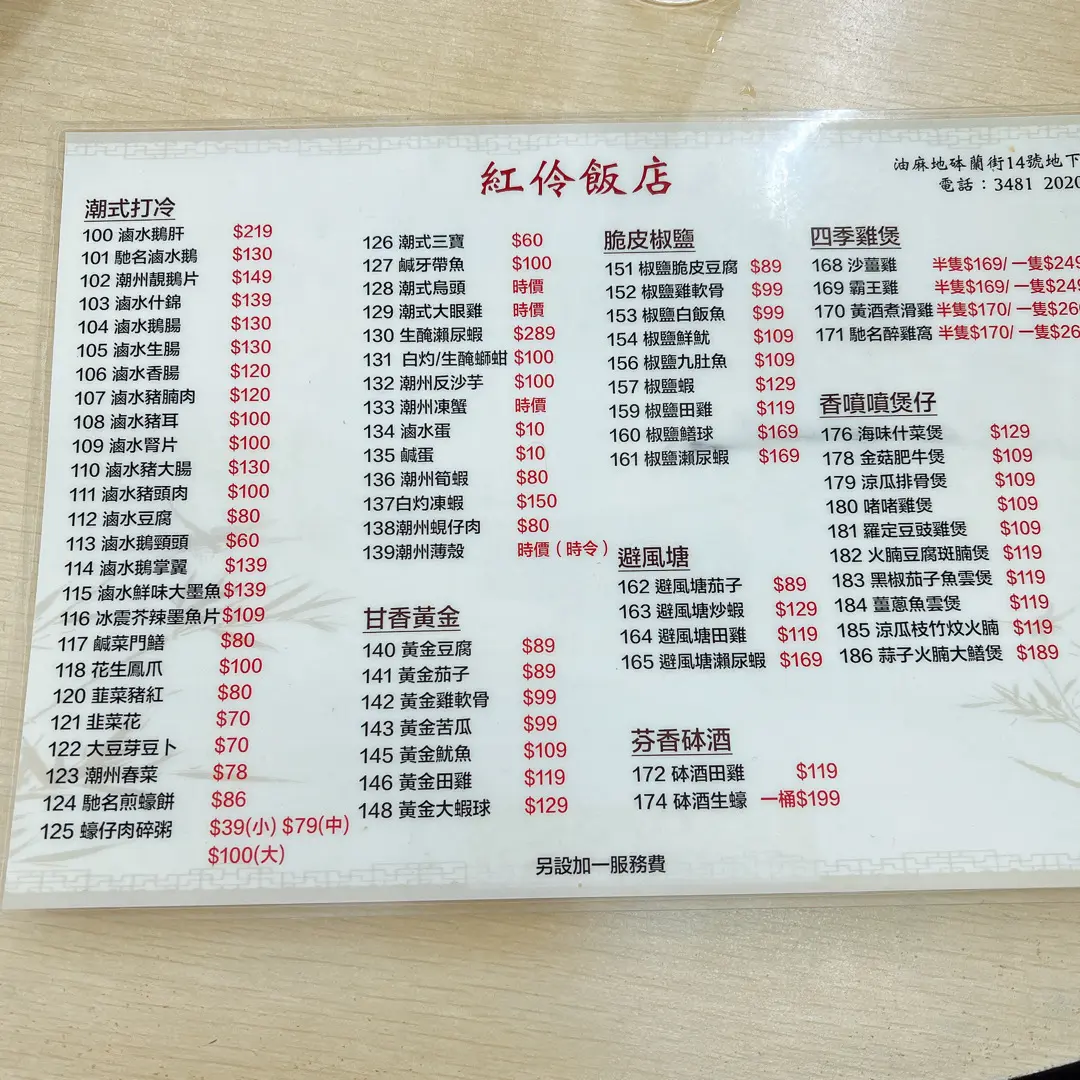 紅伶飯店
油麻地砵蘭街14號地下
電話：3481 2020
潮式打冷
100 滷水鵝肝 $219
101 馳名滷水鵝 $130
102 潮州靚鵝片 $149
103 滷水什錦 $139
104 滷水鵝腸 $130
105 滷水生腸 $130
106 滷水香腸 $120
107 滷水豬腩肉 $120
108 滷水豬耳 $100
109 滷水腎片 $100
110 滷水豬大腸 $130
111 滷水豬頭肉 $100
112 滷水豆腐 $80
113 滷水鵝頸頭 $60
114 滷水鵝掌翼 $139
115 滷水鮮味大墨魚 $139
116 冰震芥辣墨魚片 $109
117 鹹菜門鱔 $80
118 花生鳳爪 $100
120 韮菜豬紅 $80
121 韭菜花 $70
122 大豆芽豆卜 $70
123 潮州春菜 $78
124 馳名煎蠔餅 $86
125 蠔仔肉碎粥 $39(小) $79(中)
$100(大)
126 潮式三寶 $60
127 鹹牙帶魚 $100
128 潮式烏頭 時價
129 潮式大眼雞 時價
130 生醃瀨尿蝦 $289
131 白灼/生醃蜥蚶 $100
132 潮州反沙芋 $100
133 潮州凍蟹 時價
134 滷水蛋 $10
135 鹹蛋 $10
136 潮州筍蝦 $80
137白灼凍蝦 $150
138潮州蜆仔肉 $80
139潮州薄殼 時價（時令）
甘香黃金
140 黃金豆腐 $89
141 黃金茄子 $89
142 黃金雞軟骨 $99
143 黃金苦瓜 $99
145 黃金魷魚 $109
146 黃金田雞 $119
148 黃金大蝦球 $129
脆皮椒鹽
151 椒鹽脆皮豆腐 $89
152 椒鹽雞軟骨 $99
153 椒鹽白飯魚 $99
154 椒鹽鮮魷 $109
156 椒鹽九肚魚 $109
157 椒鹽蝦 $129
159 椒鹽田雞 $119
160 椒鹽鱔球 $169
161 椒鹽瀨尿蝦 $169
避風塘
162 避風塘茄子 $89
163 避風塘炒蝦 $129
164 避風塘田雞 $119
165 避風塘瀨尿蝦 $169
芬香砵酒
172 砵酒田雞 $119
174 砵酒生蠔 一桶$199
四季雞煲
168 沙薑雞 半隻$169/ 一隻$249
169 霸王雞 半隻$169/ 一隻$249
170 黃酒煮滑雞 半隻$170/ 一隻$26
171 馳名醉雞窩 半隻$170/ 一隻$26
香噴噴煲仔
176 海味什菜煲 $129
178 金菇肥牛煲 $109
179 涼瓜排骨煲 $109
180 啫啫雞煲 $109
181 羅定豆豉雞煲 $109
182 火腩豆腐斑腩煲 $119
183 黑椒茄子魚雲煲 $119
184 薑蔥魚雲煲 $119
185 涼瓜枝竹炆火腩 $119
186 蒜子火腩大鱔煲 $189
另設加一服務費